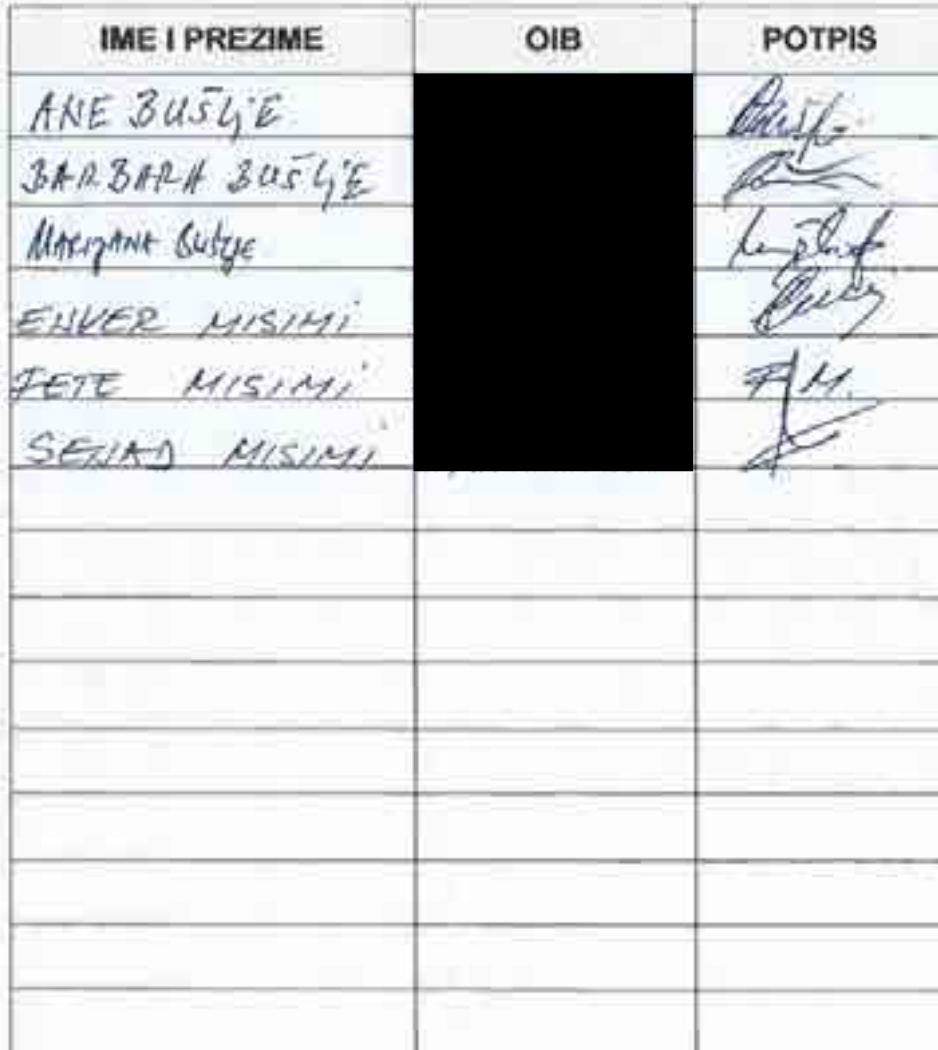 IME I PREZIME OIB POTPIS
ANE BUŠLJE
BARBARA BUŠLJE
MARIJANA BUŠLJE
ENVER MISIMI
FETE MISIMI F.M.
SENAD MISIMI